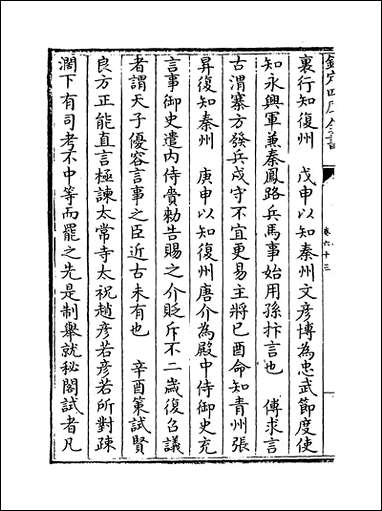 欽定四庫全書
卷六十三
裏行知復州　戊申以知秦州文彦博為忠武節度使
知永興軍兼秦鳳路兵馬事始用孫抃言也　傅求言
古渭寨方發兵戍守不宜更易主將已酉命知青州張
昇復知秦州　庚申以知復州唐介為殿中侍御史充
言事御史遣内侍賫勅告賜之介貶斥不二歲復召議
者謂天子優容言事之臣近古未有也　辛酉策試賢
良方正能直言極諫太常寺太祝趙彦若彦若所對疎
濶下有司考不中等而罷之先是制舉就秘閣試者凡